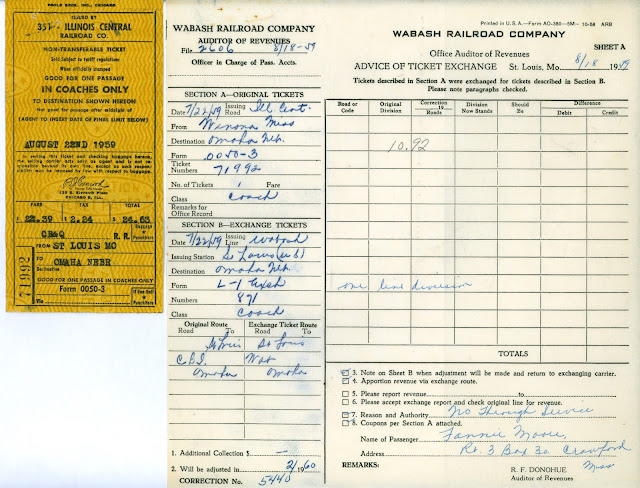 POOLE BROS. INC., CHICAGO
ISSUED BY
351 ILLINOIS CENTRAL
RAILROAD CO.
NON-TRANSFERABLE TICKET
Sold Subject to tariff regulations
When officially stamped
GOOD FOR ONE PASSAGE
IN COACHES ONLY
TO DESTINATION SHOWN HEREON
Not good for passage after midnight of
(AGENT TO INSERT DATE OF FINAL LIMIT BELOW)
AUGUST 22ND 1959
In selling this ticket and checking baggage hereon,
the selling carrier acts only as agent and is not re-
sponsible beyond its own line, except as such respon-
sibility may be imposed by law with respect to baggage.
CHICAGO 5, ILL.
FARE TAX TOTAL
$ 22.39 $ 2.24 $ 24.63
CB&Q R. R.
Baggage
Punchers
FROM ST LOUIS MO
TO
OMAHA NEBR
Destination
GOOD FOR ONE PASSAGE IN COACHES ONLY
Form 0050-3
Via
If One Half
Punchers
71992
WABASH RAILROAD COMPANY
AUDITOR OF REVENUES
File 2606 8/18-59
Officer in Charge of Pass. Accts.
SECTION A—ORIGINAL TICKETS
Date 7/22/59 Issuing Road Ill Cent.
From Winona Miss
Destination Omaha Neb.
Form 0050-3
Ticket Numbers 71992
No. of Tickets 1 Fare
Class Coach
Remarks for
Office Record
SECTION B—EXCHANGE TICKETS
Date 7/22/59 Issuing Line Wabash
Issuing Station St Louis
Destination Omaha Neb.
Form L-1 Exch
Numbers 871
Class Coach
Original Route Exchange Ticket Route
Road To Road To
St Louis St Louis
Wab
Omaha Omaha
1. Additional Collection $ —
2. Will be adjusted in 2/1960
CORRECTION No. 5440
Printed in U.S.A.—Form AO-380—5M—10-58 ARB
WABASH RAILROAD COMPANY
SHEET A
Office Auditor of Revenues
ADVICE OF TICKET EXCHANGE St. Louis, Mo. 8/18 1959
Tickets described in Section A were exchanged for tickets described in Section B.
Please note paragraphs checked.
Road or Code
Original Division
Correction in Roads
Division Now Stands
Should Be
Difference
Debit Credit
10.92
one line division
TOTALS
3. Note on Sheet B when adjustment will be made and return to exchanging carrier.
4. Apportion revenue via exchange route.
5. Please report revenue to
6. Please accept exchange report and check original line for revenue.
7. Reason and Authority No Through Service
8. Coupons per Section A attached.
Name of Passenger Fannie Moore,
Address Rt. 3 Box 30 Crawford
Miss
REMARKS:
R. F. DONOHUE
Auditor of Revenues